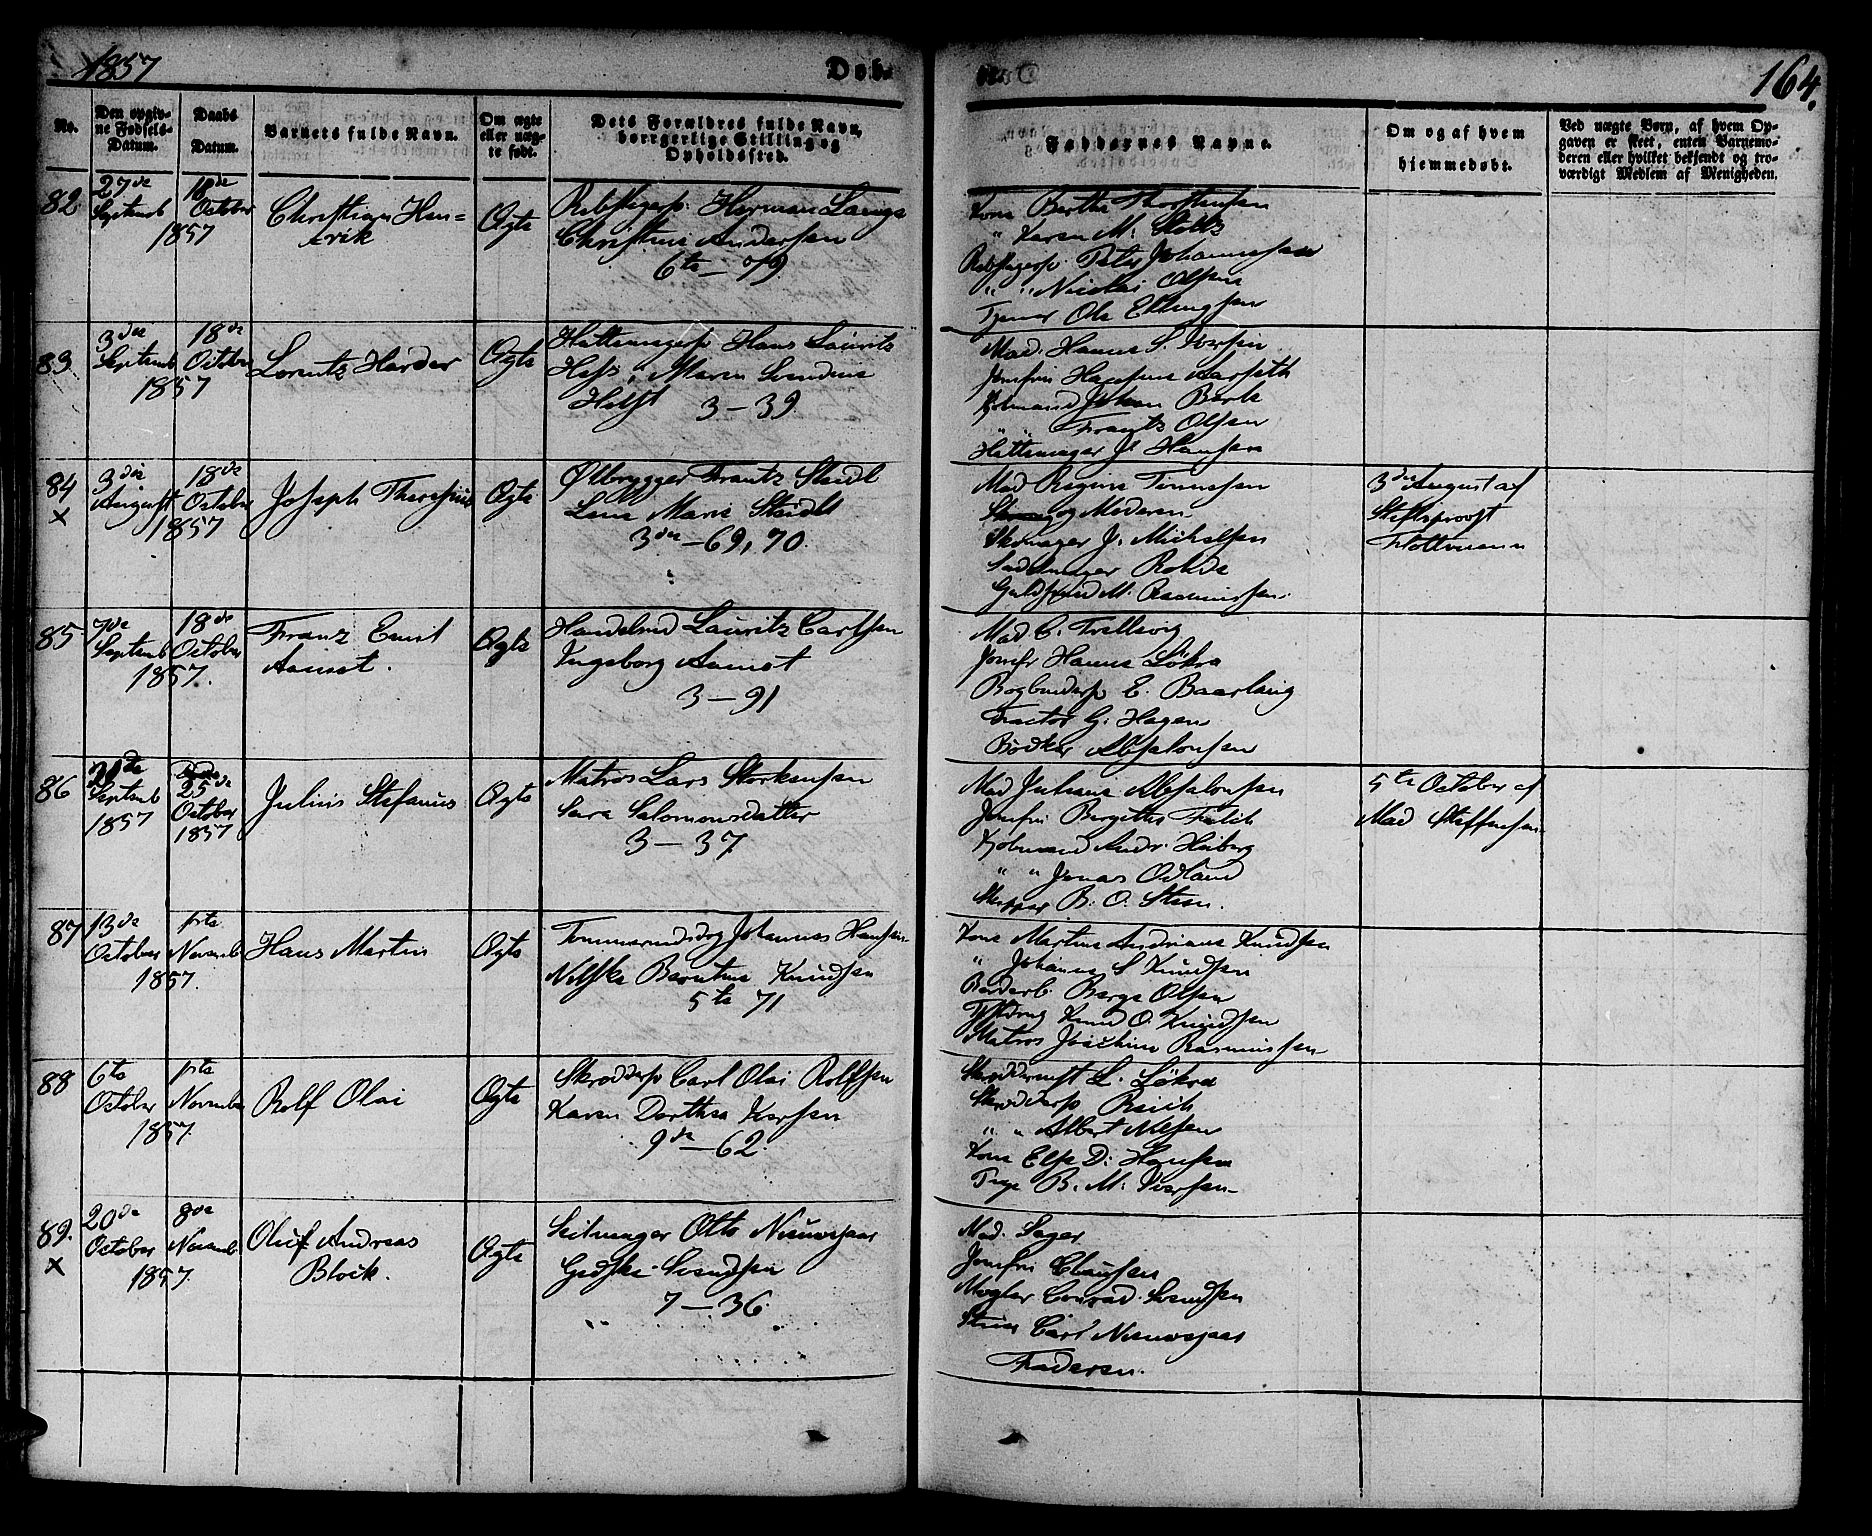 1857
Døb.
164.
No.
Den opgiv-
ne Fødsels-
Datum.
Daabs
Datum.
Barnets fulde Navn.
Om ægte
eller uæg-
te født.
Dets Forældres fulde Navn,
borgerlige Stilling og
Opholdssted.
Faddernes Navne.
Om og af hvem
hjemmedøbt.
Ved uægte Børn, af hvem Op-
gaven er skeet, enten Barnemo-
deren eller hvilket bekjendt og tro-
værdigt Medlem af Menigheden.
82
27de
Septemb
October
1857
Christian Hen-
rik
Ægte
Herman
Christine Andersen
6te – 79
Kone Berthe Thorstensen
" Karen M.
Peter Johannesen
" " Nicolai Olsen
Ole Ellingsen
83
3die
Septemb
18de
October
1857
Lorentz Harder
Ægte
Hattemagersv Hans Lauritz
Hess, Maren
3 – 39
Mad. Hanna S. Iversen
Jomfru Aarseth
Johan
" " Frantz Olsen
Hattemager J. Hansen
84
x
3die
August
18de
October
1857
Joseph
Ægte
Ølbrygger Frantz Staidl
Lene Marie Staidl
3die – 69, 70.
Mad Regine Tønnesen
og Moderen
Skomager J. Michelsen
Sadelmager Rohde
Guldsmed M. Rasmussen.
3die August af
Stiftsprovst
85
7de
Septemb
18de
October
1857.
Franz Ernst
Aamot.
Ægte
Handelsbd Lauritz Carlsen
Ingeborg Aamot
3 – 91
Mad C.
Jomfr Hanna Løkra
Bogbindersv E. Baarlaug
Factor G. Hagen
Bødker Absalonsen
86
Septemb
1857
25de
October
1857
Julius Stefanus
Ægte
Matros Lars Storkensen
Sara Salomonsdatter
3 – 37
Mad Juliane Absalonsen
Jomfru Birgitte
Andr. Heiberg
" " Jonas Odland
B. O. Steen.
5te October af
Mad Steffensen
87
13de
October
1ste
Novemb
1857.
Hans Martin
Ægte
Johannes Hansen
Berntine Knudsen
5te 71
Kone Martine Andriane Knudsen
" Johanne S Knudsen
Børge Olsen
Knud O. Knudsen
Matros Joachim Rasmussen
88
6te
October
1ste
November
1857.
Rolf Olai
Ægte
Skræddersv Carl Olai Rolfsen
Karen Dorthea Iversen
9de – 62.
L. Løkra
Skræddersv Reich
" " Albert Nilsen
Kone Else D. Hansen
Pige B. M. Iversen
89.
x
20de
October
8de
Novemb
1857.
Oluf Andreas
Block.
Ægte
Seilmager Otto Nieuwejaar
Gjedske Svendsen
7 – 36.
Mad. Sager
Jomfru Clausen
Mægler Conrad Svendsen
Carl Nieuwejaar
Faderen.